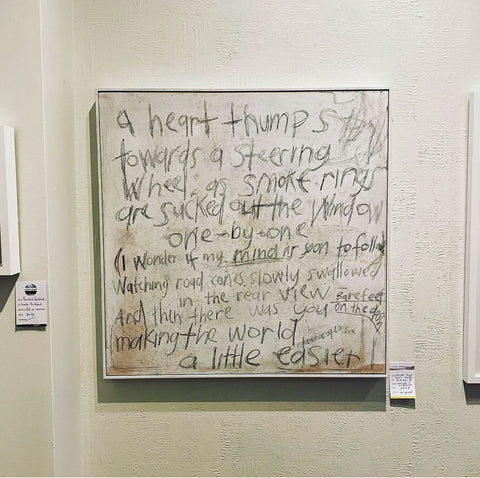 a heart thumps
towards a steering
wheel, as smoke rings
are sucked out the window
one-by-one
(I wonder if my mind is soon to follow
Watching road cones slowly swallowed
in the rear view
Barefeet
on the dash
And then there was you
making the world
a little easier